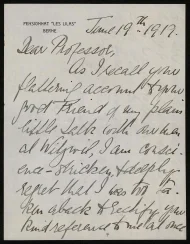 PENSIONNAT "LES LILAS"
BERNE
June 19th 1917.
Dear Professor,
As I recall your
flattering account to your
good Friend of my plain
little talk with you here
at I am consci-
ence-stricken, & deeply
regret that I was too ta-
ken aback to rectify your
kind reference to me at once